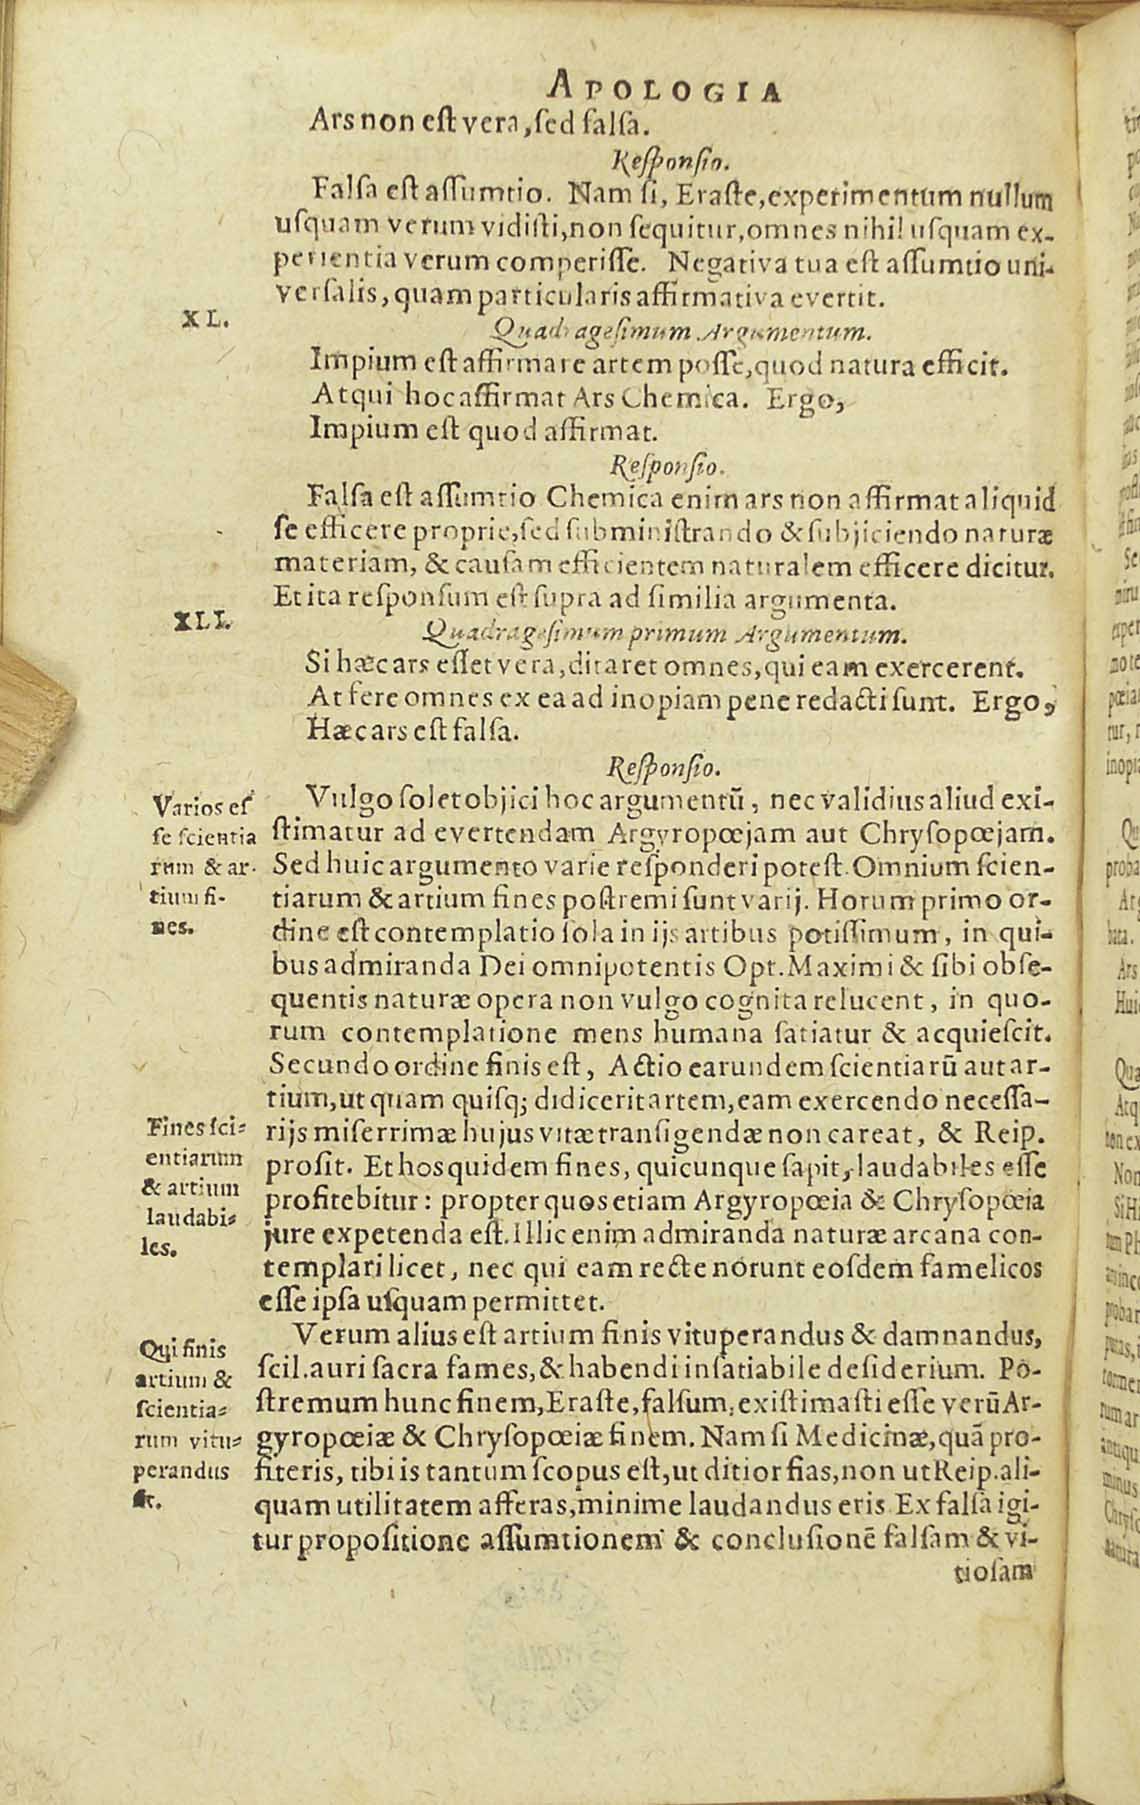 APOLOGIA
Ars non est vera, sed falsa.
Responsio.
Falsa est assumtio. Nam si, Eraste, experimentum nullum
usquam verum vidisti, non sequitur, omnes nihil usquam ex-
perientia verum comperisse. Negativa tua est assumtio uni-
versalis, quam particularis affirmativa evertit.
XL.
Quadragesimum Argumentum.
Impium est affirmare artem posse, quod natura efficit.
Atqui hoc affirmat Ars Chemica. Ergo,
Impium est quod affirmat.
Responsio.
Falsa est assumtio Chemica enim ars non affirmat aliquid
se efficere proprie, sed subministrando & subjiciendo naturæ
materiam, & causam efficientem naturalem efficere dicitur.
Et ita responsum est supra ad similia argumenta.
XLI.
Quadragesimum primum Argumentum.
Si hæc ars esset vera, ditaret omnes, qui eam exercerent.
At fere omnes ex ea ad inopiam pene redacti sunt. Ergo,
Hæc ars est falsa.
Responsio.
Varios es
se scientia
rum & ar-
tium fi-
nes.
Vulgo solet objici hoc argumentū, nec validius aliud exi-
stimatur ad evertendam Argyropœjam aut Chrysopœjam.
Sed huic argumento varie responderi potest. Omnium scien-
tiarum & artium fines postremi sunt varij. Horum primo or-
dine est contemplatio sola in ijs artibus potissimum, in qui-
bus admiranda Dei omnipotentis Opt. Maximi & sibi obse-
quentis naturæ opera non vulgo cognita relucent, in quo-
rum contemplatione mens humana satiatur & acquiescit.
Secundo ordine finis est, Actio earundem scientiarū aut ar-
tium, ut quam quisq; didicerit artem, eam exercendo necessa-
rijs miserrimæ hujus vitæ transigendæ non careat, & Reip.
prosit. Et hos quidem fines, quicunque sapit, laudabiles esse
profitebitur: propter quos etiam Argyropœia & Chrysopœia
jure expetenda est. Illic enim admiranda naturæ arcana con-
templari licet, nec qui eam recte nòrunt eosdem famelicos
esse ipsa usquam permittet.
Fines sci-
entiarum
& artium
laudabi-
les.
Verum alius est artium finis vituperandus & damnandus,
scil. auri sacra fames, & habendi insatiabile desiderium. Po-
stremum hunc finem, Eraste, falsum, existimasti esse verū Ar-
gyropœiæ & Chrysopœiæ finem. Nam si Medicinæ, quā pro-
fiteris, tibi is tantum scopus est, ut ditior fias, non ut Reip. ali-
quam utilitatem afferas, minime laudandus eris. Ex falsa igi-
tur propositione assumtionem & conclusionē falsam & vi-
tiosam
Qui finis
artium &
scientia-
rum vitu-
perandus
sit.